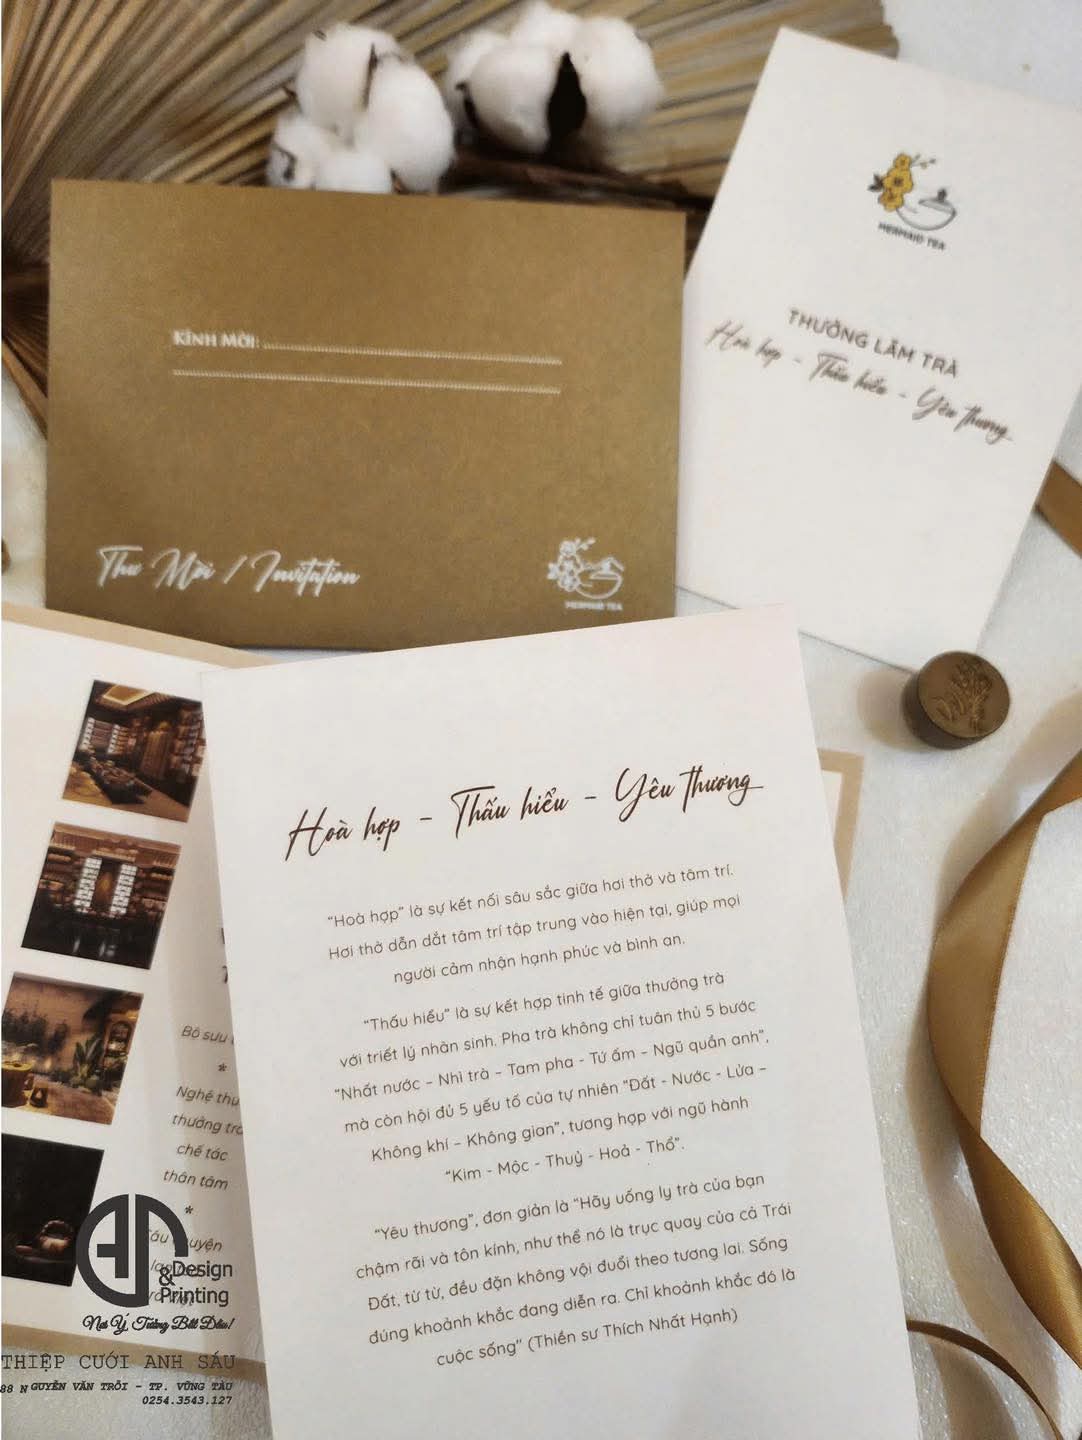 KÍNH MỜI:
Thư Mời / Invitation
MERMAID TEA
MERMAID TEA
THƯỞNG LÃM TRÀ
Hoà hợp - Thấu hiểu - Yêu thương
Hoà hợp - Thấu hiểu - Yêu thương
“Hoà hợp” là sự kết nối sâu sắc giữa hơi thở và tâm trí.
Hơi thở dẫn dắt tâm trí tập trung vào hiện tại, giúp mọi
người cảm nhận hạnh phúc và bình an.
“Thấu hiểu” là sự kết hợp tinh tế giữa thưởng trà
với triết lý nhân sinh. Pha trà không chỉ tuân thủ 5 bước
“Nhất nước – Nhì trà – Tam pha - Tứ ấm – Ngũ quần anh”,
mà còn hội đủ 5 yếu tố của tự nhiên “Đất - Nước - Lửa –
Không khí – Không gian”, tương hợp với ngũ hành
“Kim - Mộc - Thuỷ - Hoả - Thổ”.
“Yêu thương”, đơn giản là “Hãy uống ly trà của bạn
chậm rãi và tôn kính, như thể nó là trục quay của cả Trái
Đất, từ từ, đều đặn không vội đuổi theo tương lai. Sống
đúng khoảnh khắc đang diễn ra. Chỉ khoảnh khắc đó là
cuộc sống” (Thiền sư Thích Nhất Hạnh)
Bộ sưu
*
Nghệ thu
thưởng trà
chế tác
thân tâm
*
&Design
Printing
Nơi Ý Tưởng Bắt Đầu!
THIỆP CƯỚI ANH SÁU
88 NGUYỄN VĂN TRỖI - TP. VŨNG TÀU
0254.3543.127